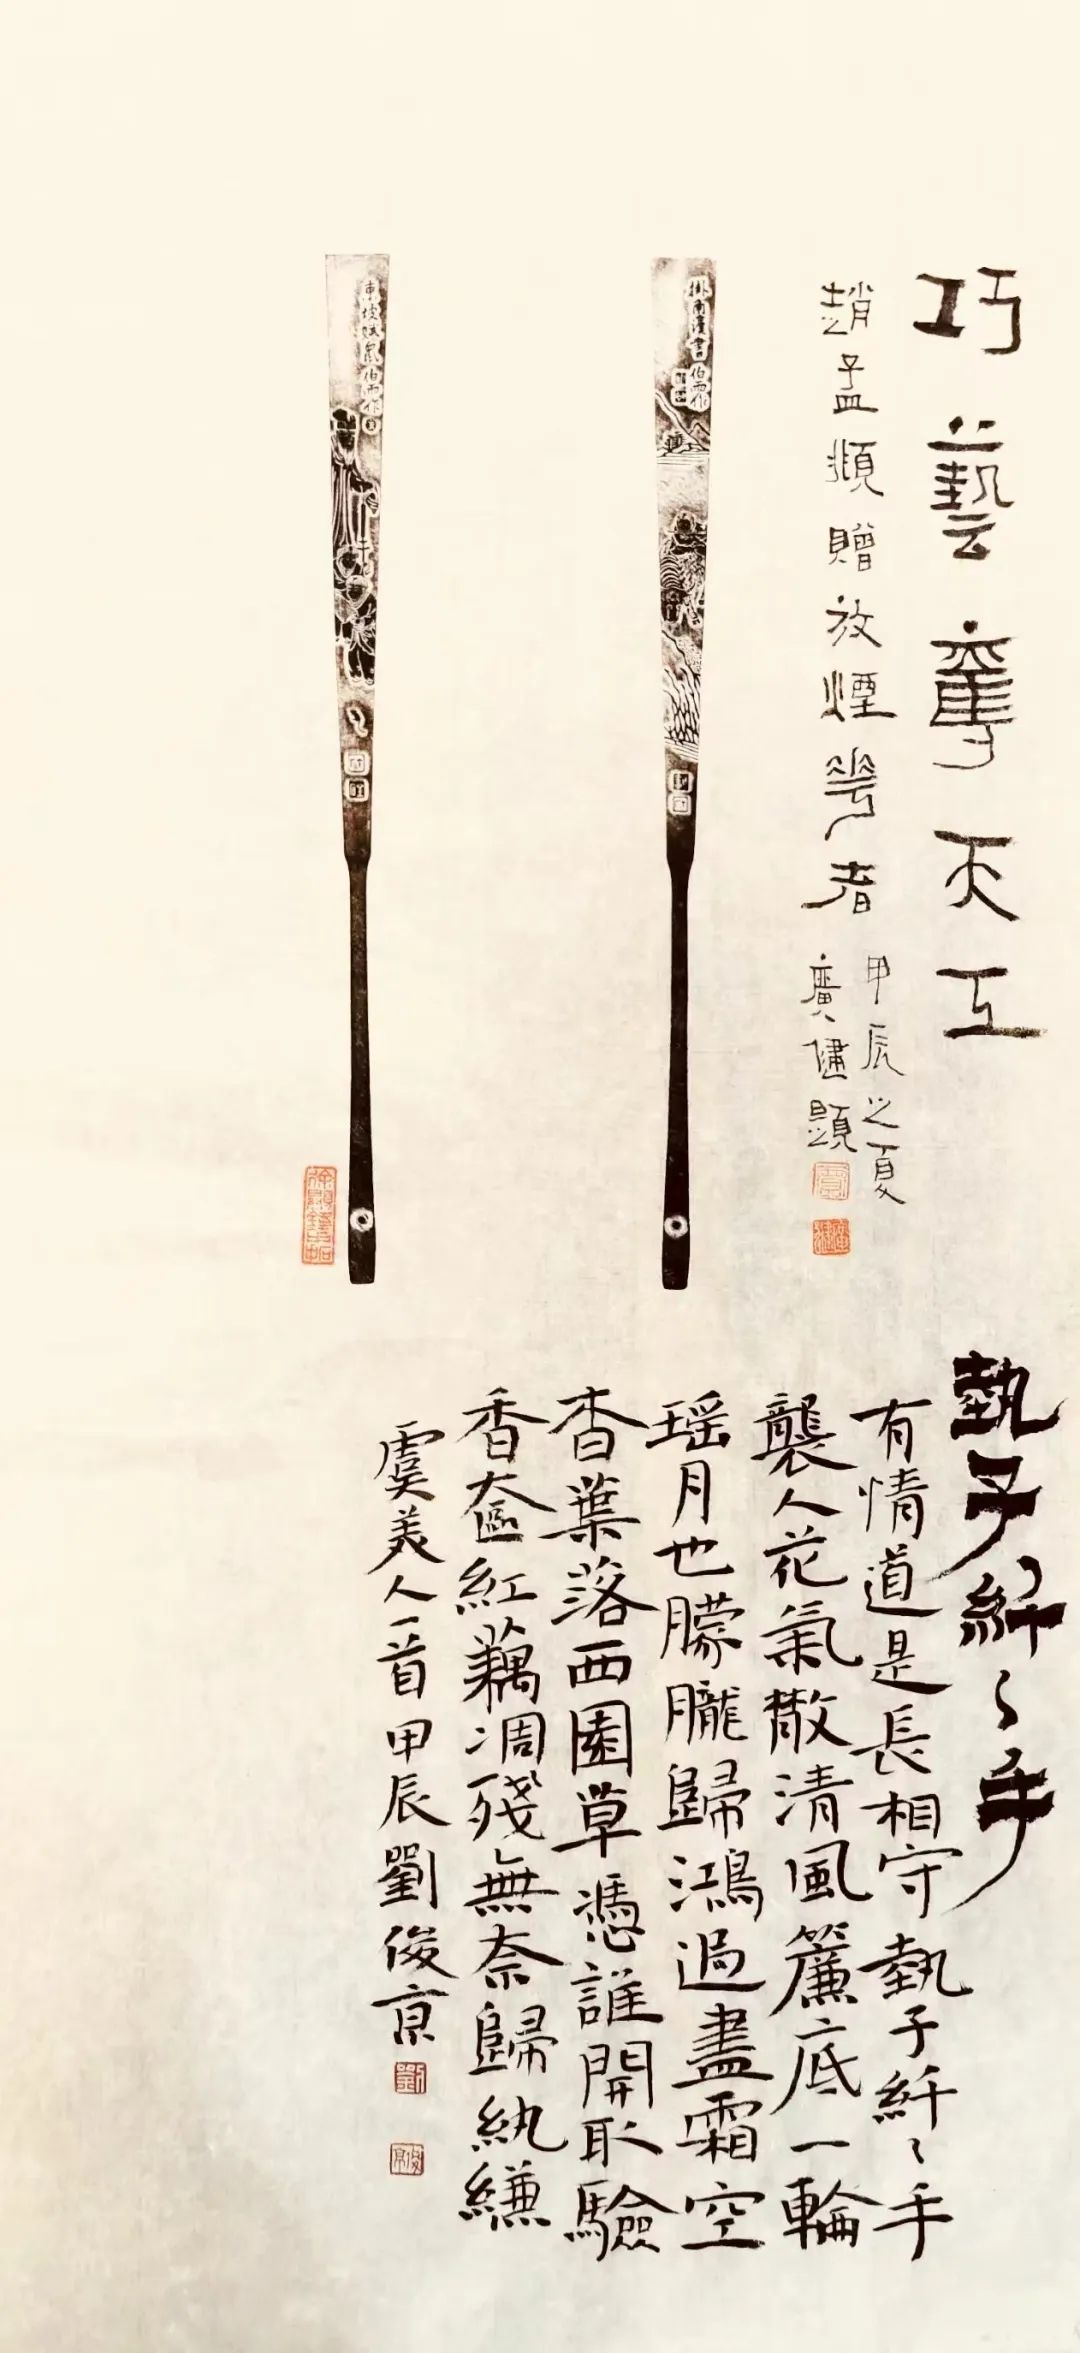 巧藝奪天工
趙孟頫贈放煙花者
甲辰之夏
廣健題
執子纤〻手
有情道是長相守執子纤〻手
襲人花氣散清風簾底一輪
瑶月也朦朧歸鴻過盡霜空
杳葉落西園草憑誰開取驗
香奩紅藕凋殘無奈歸紈縑
虞美人一首甲辰劉俊京
劉